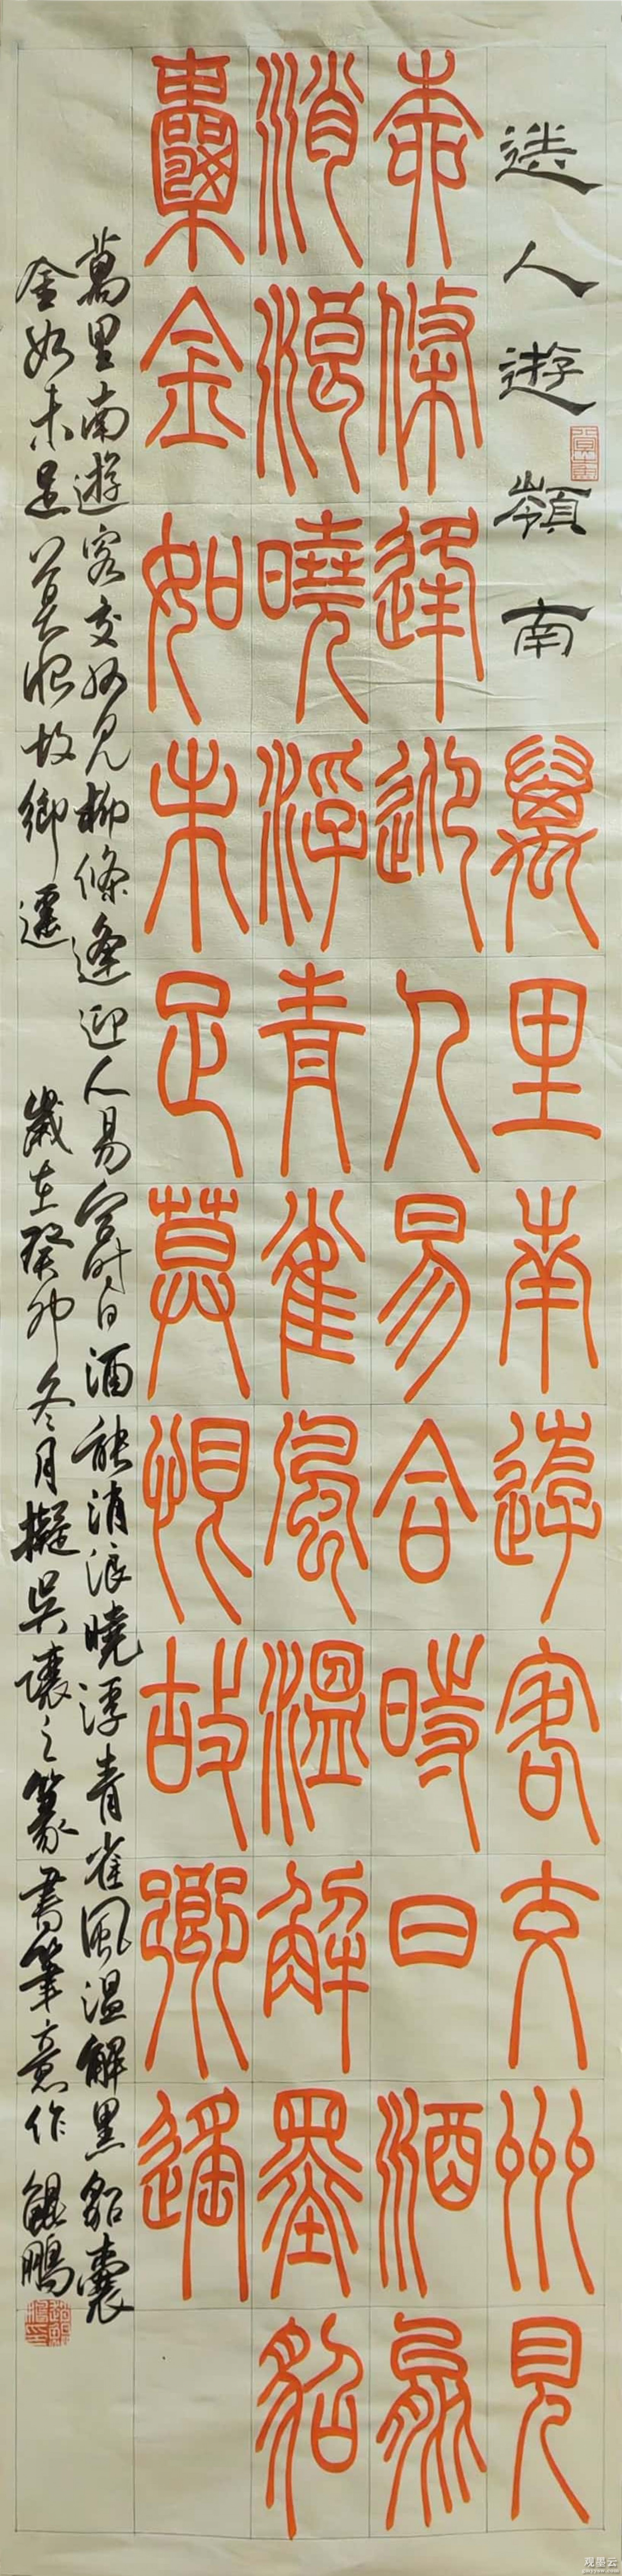 送人遊嶺南
萬里南遊客交州見
柳條逢迎人易合時日酒能
消浪曉浮青雀風溫解黑貂
囊金如未足莫恨故鄉遙
萬里南遊客交州見柳條逢迎人易合時日酒能消浪曉浮青雀風溫解黑貂囊
金如未足莫恨故鄉遙 歲在癸卯冬月擬吳讓之篆書筆意作 鯤鵬
观墨云